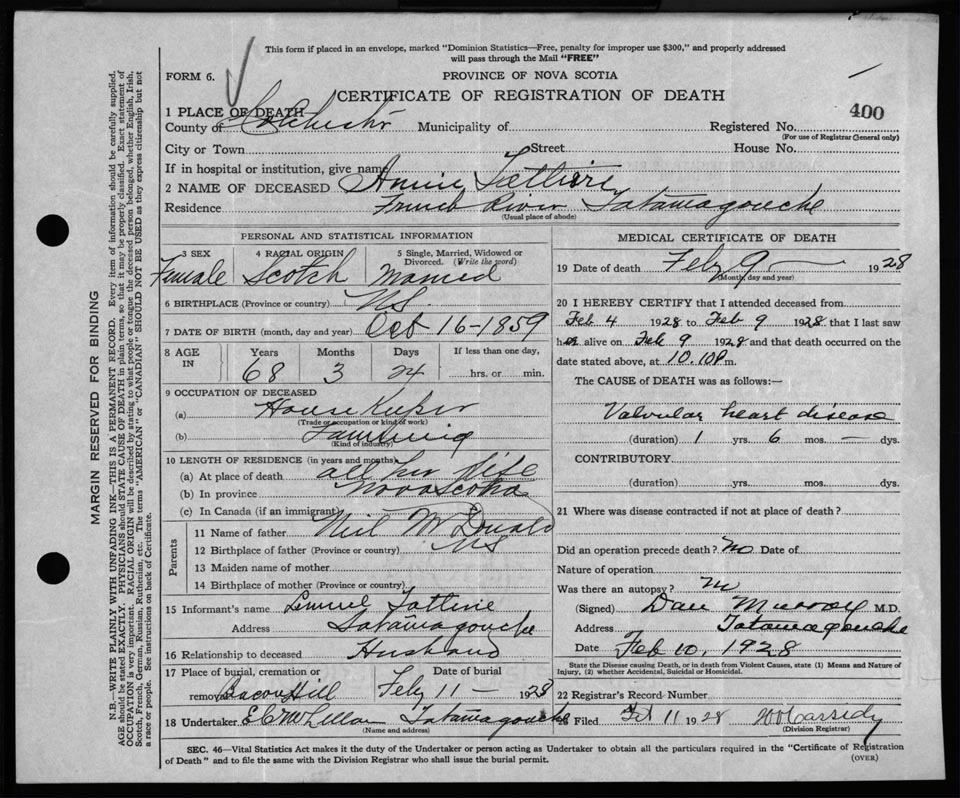 This form if placed in an envelope, marked "Dominion Statistics—Free, penalty for improper use $300," and properly addressed
will pass through the Mail "FREE"
FORM 6.
PROVINCE OF NOVA SCOTIA
CERTIFICATE OF REGISTRATION OF DEATH
400
1 PLACE OF DEATH
County of Colchester Municipality of Registered No.
(For use of Registrar General only)
City or Town Street House No.
If in hospital or institution, give name
2 NAME OF DECEASED Annie
Residence French River Tatamagouche
(Usual place of abode)
PERSONAL AND STATISTICAL INFORMATION
3 SEX 4 RACIAL ORIGIN 5 Single, Married, Widowed or
Divorced. (Write the word)
Female Scotch Married
6 BIRTHPLACE (Province or country) NS
7 DATE OF BIRTH (month, day and year) Oct 16-1859
8 AGE IN Years Months Days If less than one day,
68 3 24 hrs. or min.
9 OCCUPATION OF DECEASED
(a) House Keeper
(Trade or occupation or kind of work)
(b) Farming
(Kind of industry)
10 LENGTH OF RESIDENCE (in years and months)
(a) At place of death all her life
(b) In province Nova Scotia
(c) In Canada (if an immigrant)
Parents
11 Name of father Neil McDonald
12 Birthplace of father (Province or country) NS
13 Maiden name of mother
14 Birthplace of mother (Province or country)
15 Informant's name Lemuel
Address Tatamagouche
16 Relationship to deceased Husband
17 Place of burial, cremation or Date of burial
removal Bacon Hill Feby 11 — 1928
18 Undertaker Tatamagouche
(Name and address)
MEDICAL CERTIFICATE OF DEATH
19 Date of death Feby 9 — 1928
(Month, day and year)
20 I HEREBY CERTIFY that I attended deceased from
Feb 4 1928 to Feb 9 1928 that I last saw
her alive on Feb 9 1928 and that death occurred on the
date stated above, at 10.10 P m.
The CAUSE of DEATH was as follows:—
Valvular heart disease
(duration) 1 yrs. 6 mos. — dys.
CONTRIBUTORY
(duration) yrs. mos. dys.
21 Where was disease contracted if not at place of death?
Did an operation precede death? No Date of
Nature of operation
Was there an autopsy? No
(Signed) Dan Murray M.D.
Address Tatamagouche
Date Feb 10, 1928
State the Disease causing Death, or in death from Violent Causes, state (1) Means and Nature of
Injury, (2) whether Accidental, Suicidal or Homicidal.
22 Registrar's Record Number
23 Filed Feb 11 1928 Cassidy
(Division Registrar)
SEC. 46—Vital Statistics Act makes it the duty of the Undertaker or person acting as Undertaker to obtain all the particulars required in the "Certificate of Registration
of Death" and to file the same with the Division Registrar who shall issue the burial permit.
(OVER)
MARGIN RESERVED FOR BINDING
N.B.—WRITE PLAINLY WITH UNFADING INK—THIS IS A PERMANENT RECORD. Every item of information should be carefully supplied.
AGE should be stated EXACTLY. PHYSICIANS should STATE CAUSE OF DEATH in plain terms, so that it may be properly classified. Exact statement of
OCCUPATION is very important. RACIAL ORIGIN will be described by stating to what people or tongue the deceased person belonged, whether English, Irish,
Scotch, French, German, Russian, Ruthenian, etc. The terms "AMERICAN" or "CANADIAN" SHOULD NOT BE USED as they express citizenship but not
a race or people. See instructions on back of Certificate.